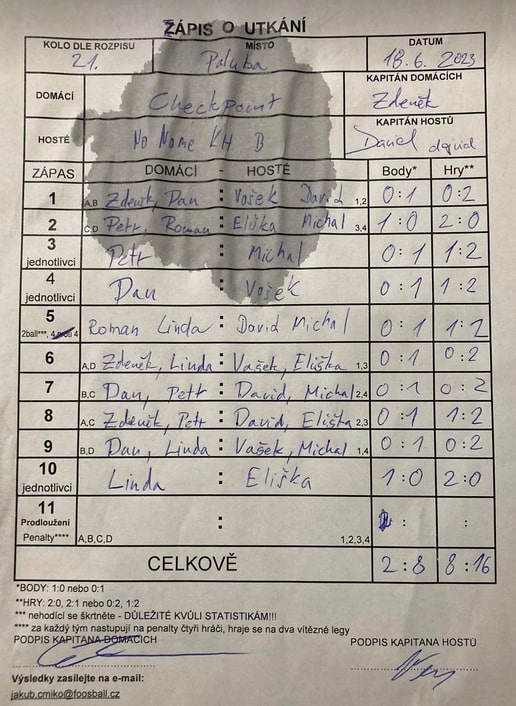 ZÁPIS O UTKÁNÍ
KOLO DLE ROZPISU MÍSTO DATUM
21. Paluba 18.6.2023
DOMÁCÍ Checkpoint KAPITÁN DOMÁCÍCH
Zdeněk
HOSTÉ No Name KH B KAPITÁN HOSTŮ
Daniel
ZÁPAS DOMÁCÍ - HOSTÉ Body* Hry**
1 A,B Zdeněk, Dan : Vašek David 1,2 0:1 0:2
2 C,D Petr, Roman : Eliška Michal 3,4 1:0 2:0
3 jednotlivci Petr : Michal 0:1 1:2
4 jednotlivci Dan : Vašek 0:1 1:2
5 2ball***, 4 Roman Linda : David Michal 0:1 1:2
6 A,D Zdeněk, Linda : Vašek, Eliška 1,3 0:1 0:2
7 B,C Dan, Petr : David, Michal 2,4 0:1 0:2
8 A,C Zdeněk, Petr : David, Eliška 2,3 0:1 1:2
9 B,D Dan, Linda : Vašek, Michal 1,4 0:1 0:2
10 jednotlivci Linda : Eliška 1:0 2:0
11 Prodloužení
Penalty**** A,B,C,D : 1,2,3,4 : :
CELKOVĚ 2:8 8:16
*BODY: 1:0 nebo 0:1
**HRY: 2:0, 2:1 nebo 0:2, 1:2
*** nehodící se škrtněte - DŮLEŽITÉ KVŮLI STATISTIKÁM!!!
**** za každý tým nastupují na penalty čtyři hráči, hraje se na dva vítězné legy
PODPIS KAPITANA DOMACICH PODPIS KAPITANA HOSTŮ
Výsledky zasílejte na e-mail:
jakub.cmiko@foosball.cz